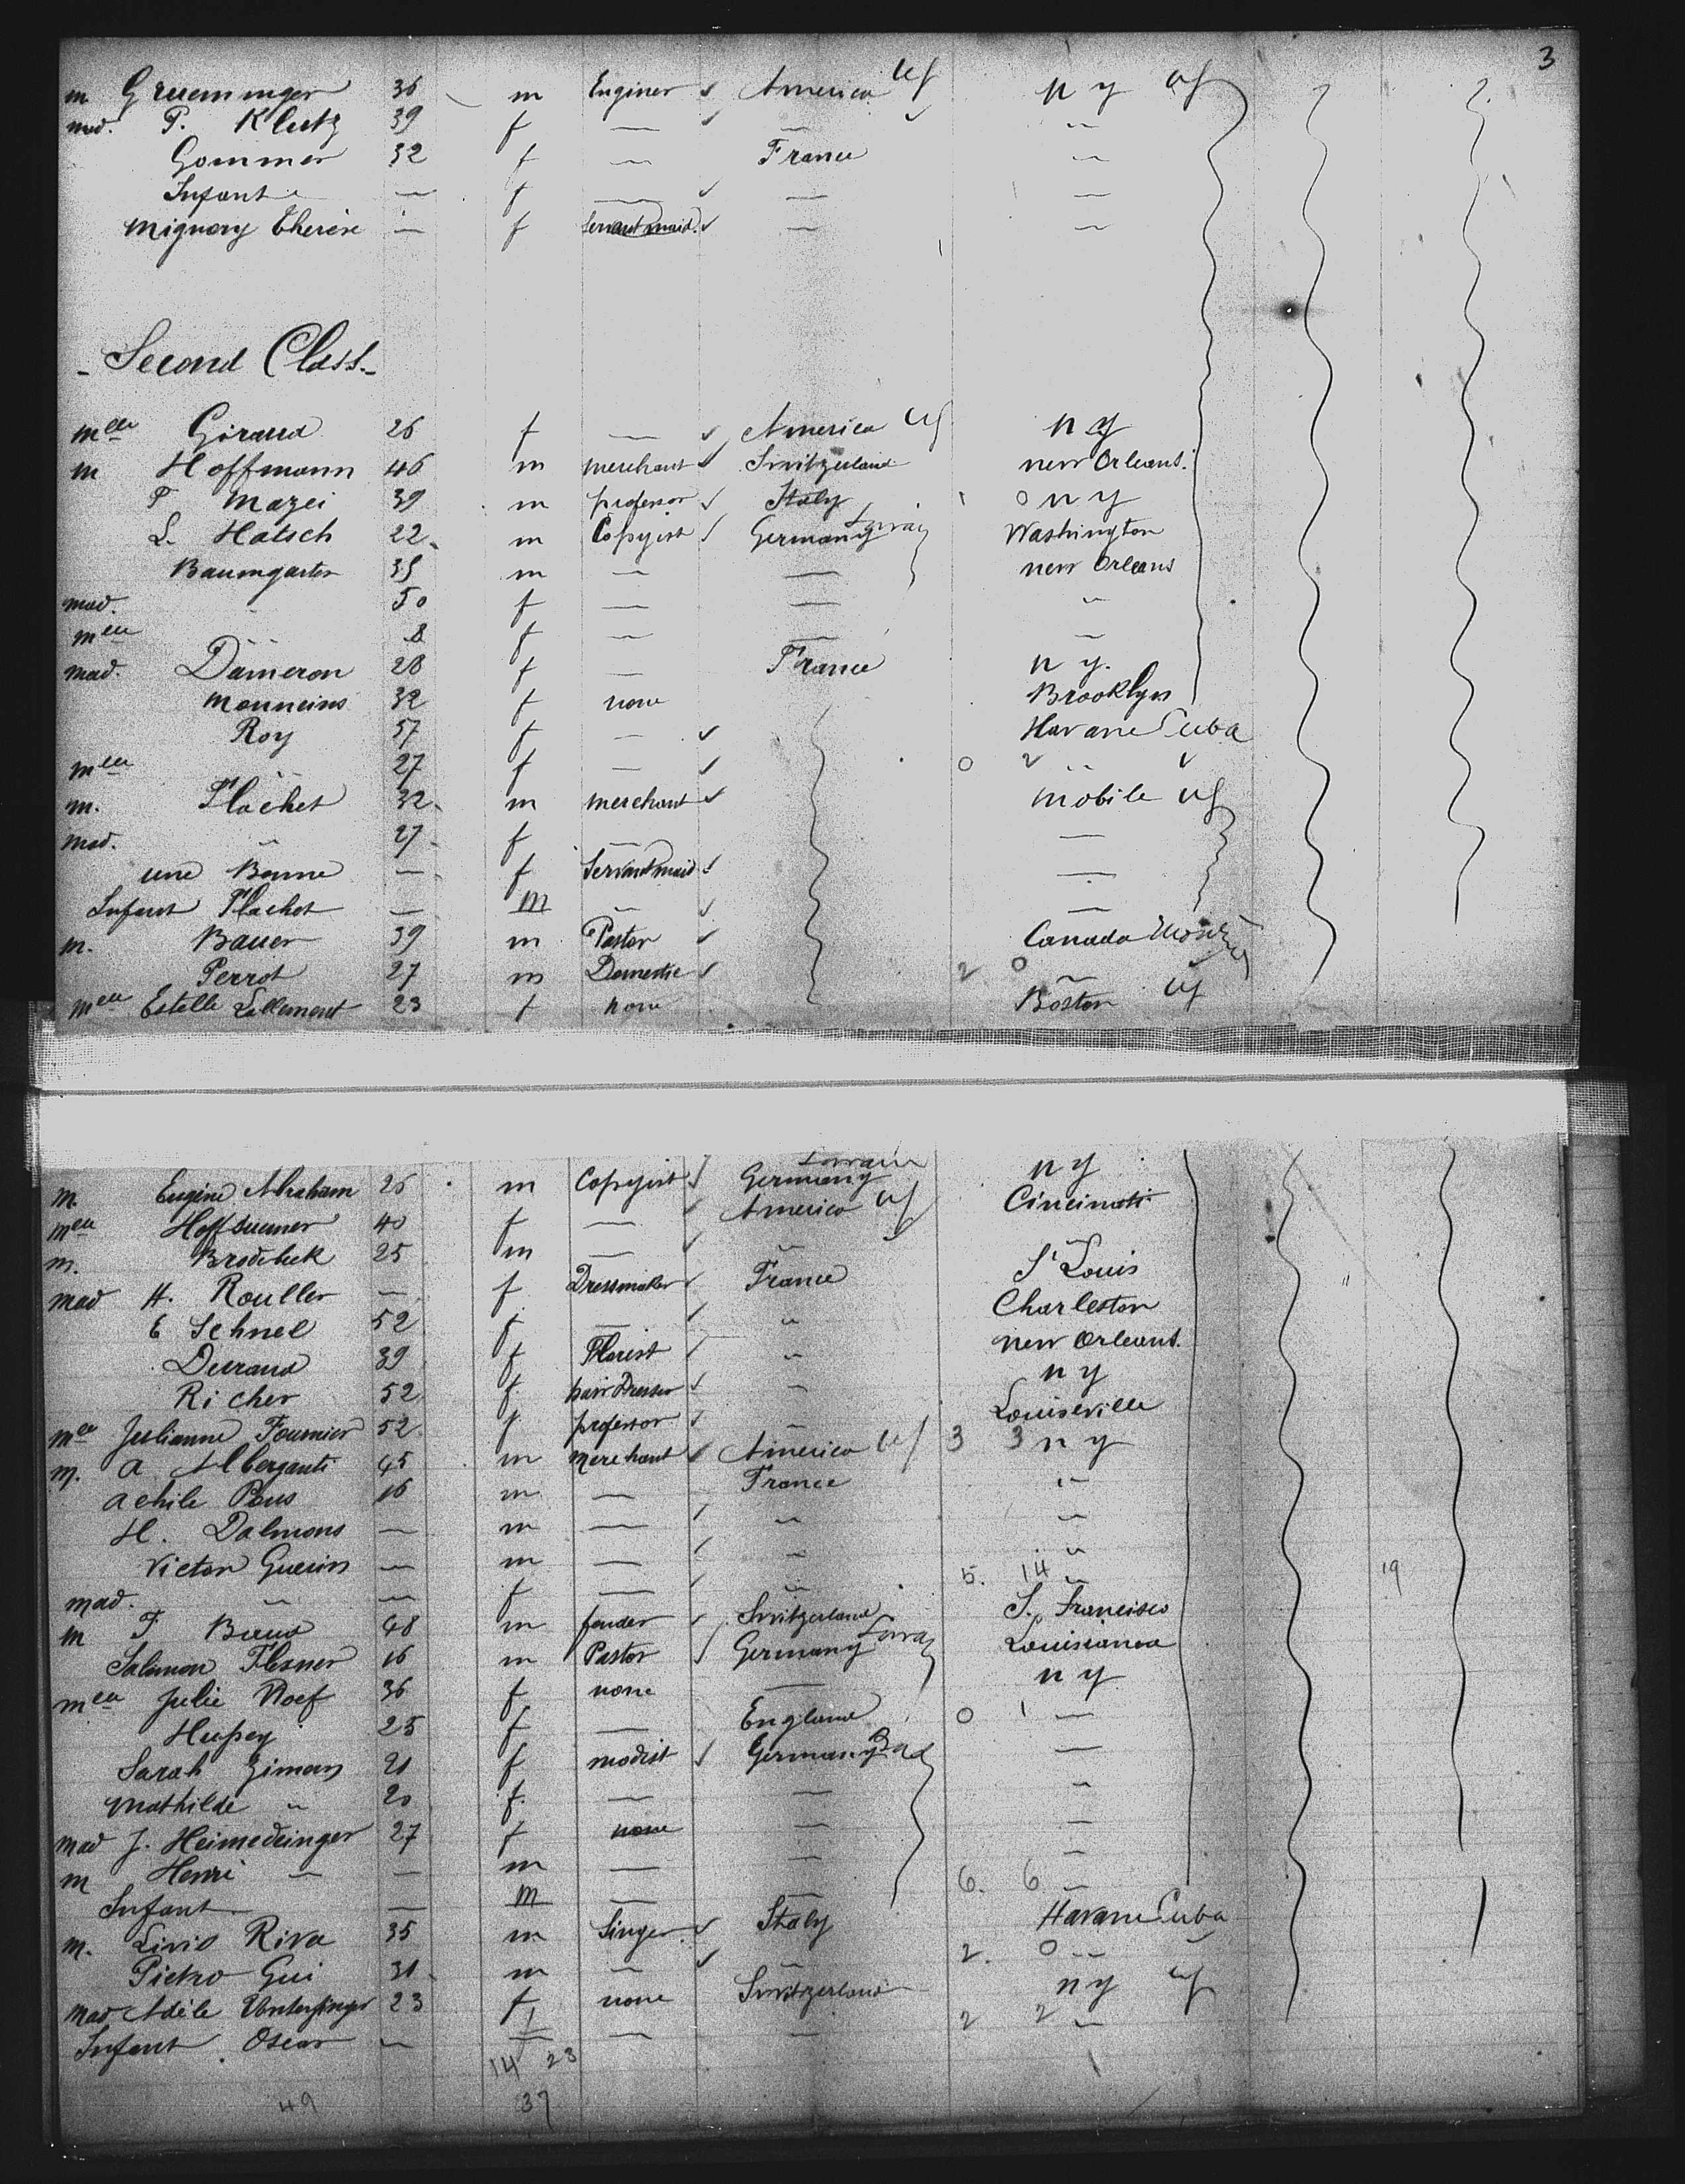 3
m Grueninger 36 m Enginer America US N Y US
mad. P. Klutz 39 f — — "
Gommer 32 f — France "
Infant — f — — —
Mignory Therèse — f Servant maid — —
- Second Class -
Melle Giraud 26 f — America US N Y
m Hoffmann 46 m merchant Switzerland new Orleans
P Mazei 39 m professor Italy 0 N Y
L. Hatsch 22 m Copyist Germany Lorrain Washington
Baumgarten 35 m — — new Orleans
mad. " 50 f — — "
Melle " 8 f — — —
mad. Dameron 28 f — France N Y.
32 f none Brooklyn
Roy 57 f — Havane Cuba
Melle " 27 f — 0 2 "
m. Flachet 32 m merchant Mobile US
mad. " 27 f — —
une Bonne — f Servant maid —
Infant Flachet — m — —
m. Bauer 39 m Pastor Canada
Perrot 27 m Domestic 2 0 —
Melle Estelle Lallement 23 f none Boston US
m. Eugène Abraham 26 m Copyist Germany Lorrain N Y
Melle 40 f — America US Cincinnati
m. Brodbeck 25 m — " "
mad H. Rouller — f Dressmaker France St Louis
E Schnel 52 f — " Charleston
Durand 39 f Florist " new Orleans.
Richer 52 f hair Dresser " N Y
Melle Julianne Fournier 52 f professor — Louiseville
m. A Alberganti 45 m Merchant America US 3 3 N Y
Achile Pous 16 m — France "
H. Dalmons — m — " "
Victor Guerin — m — " "
mad. " — f — " 5. 14 " 19
m F Baud 48 m Switzerland S. Francisco
Salimon Flexner 16 m Pastor Germany Lorrain Louisianna
Melle Julie 36 f none — N Y
Hupey 25 f — England 0 1 —
Sarah Zimern 21 f modist Germany Bad —
Mathilde " 20 f — — "
mad J. Heimedinger 27 f none — —
m Henri — — m — — "
Infant — — m — — 6. 6 "
m. Livio Riva 35 m Singer Italy Havane Cuba
Pietro Gui 31 m — " 2. 0 "
mad Adèle 23 f none Switzerland N Y US
Infant Oscar — — — 2 2 "
14 23
49 37